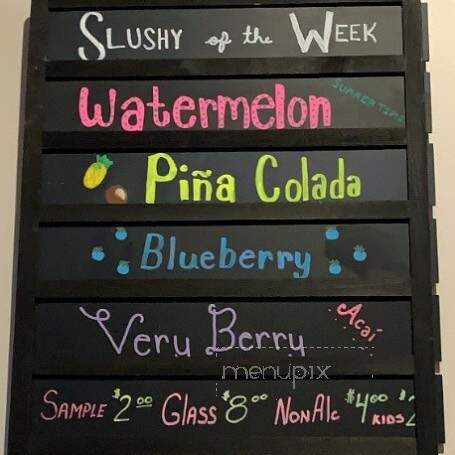 SLUSHY of the WEEK
Watermelon SUMMERTIME
Piña Colada
Blueberry
Very Berry Acaí
menupix
SAMPLE $2.00 GLASS $8.00 NONALC $4.00 KIDS $2